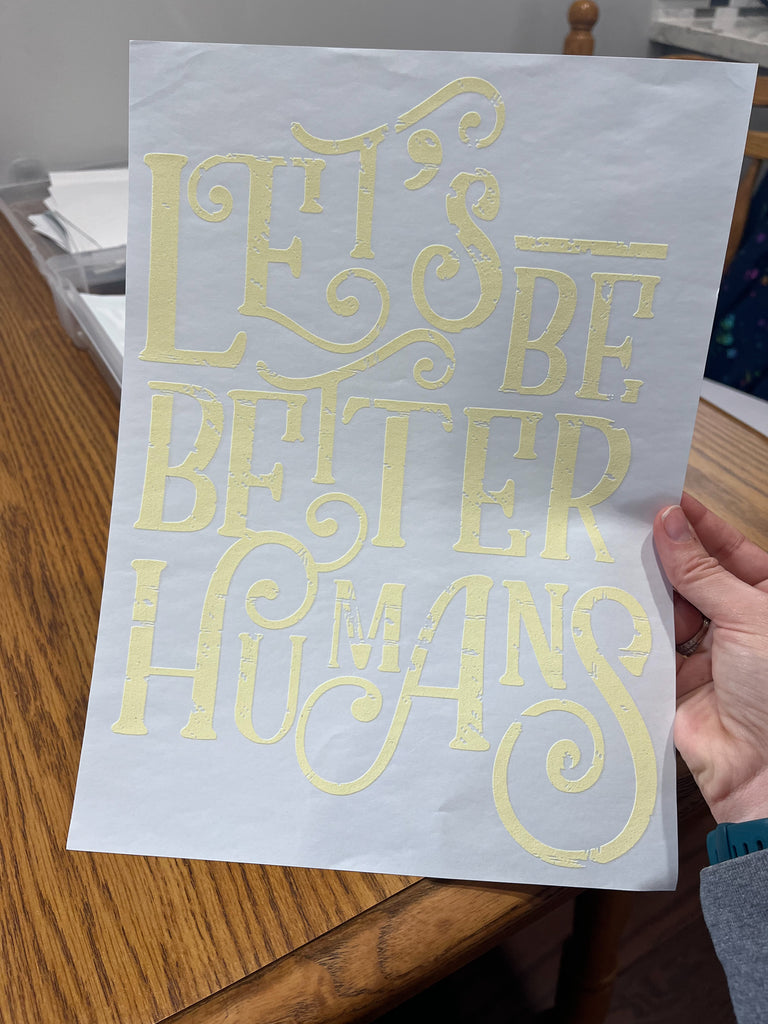 LET'S
BE
BETTER
HUMANS